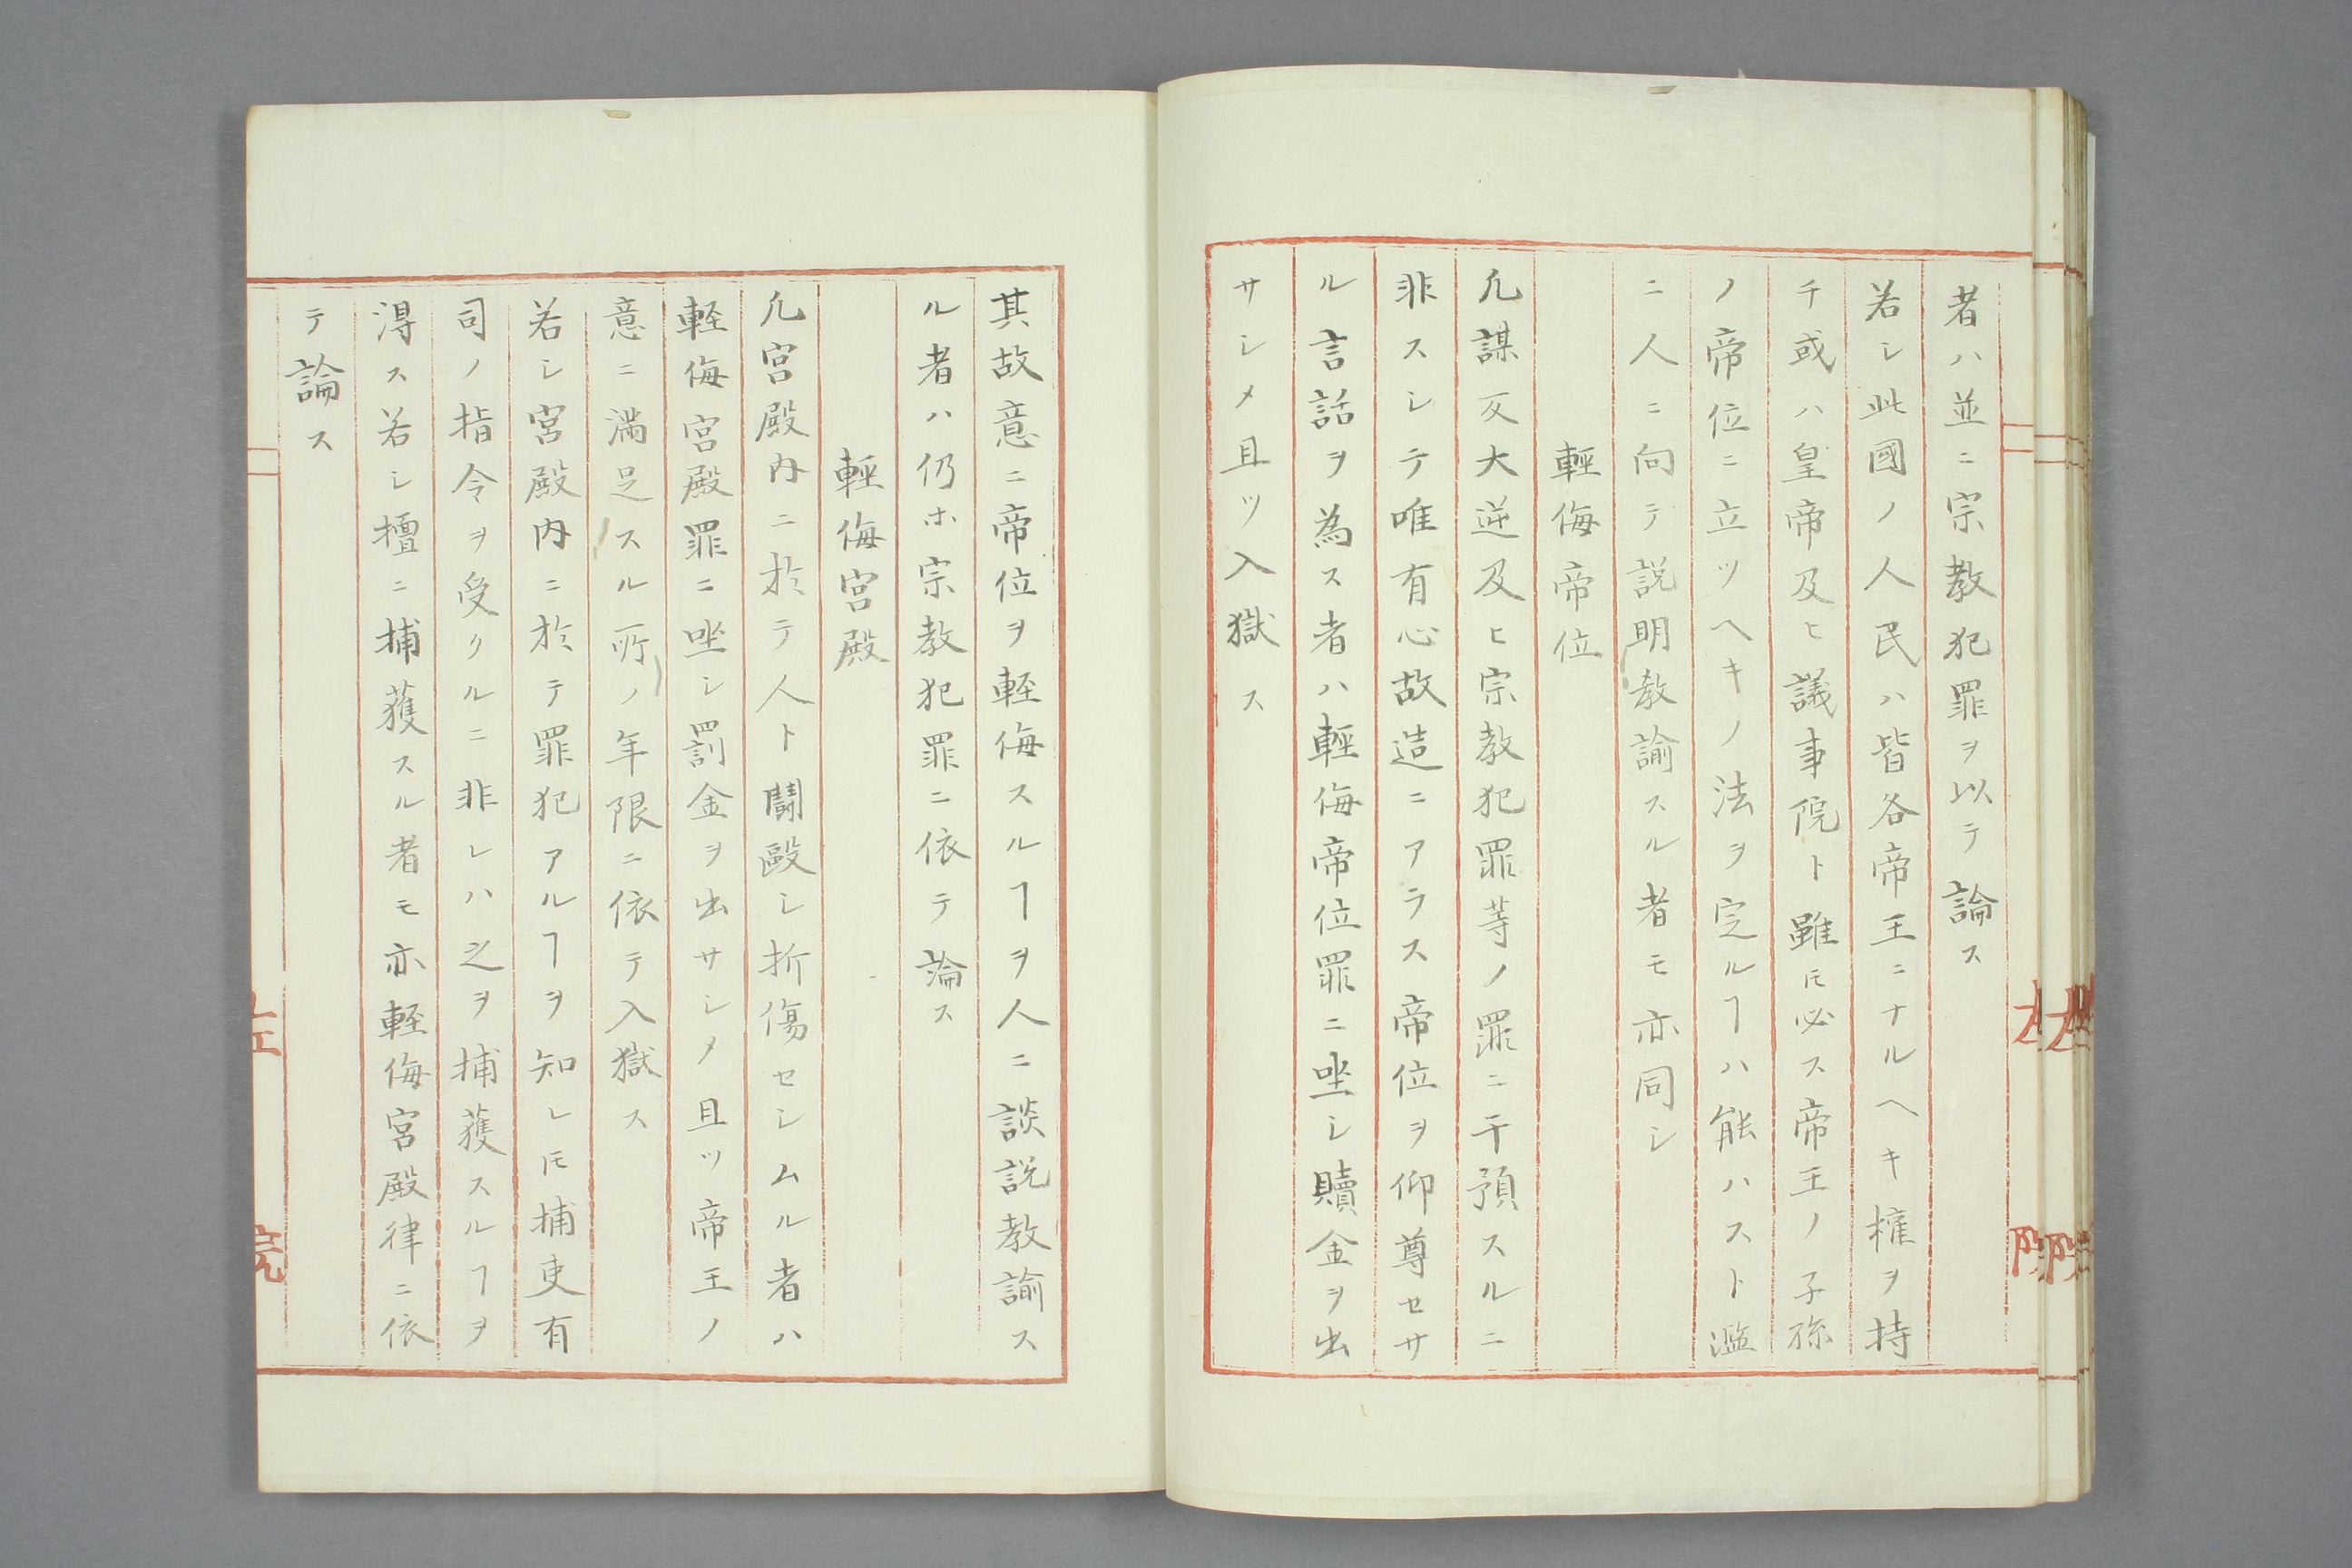 者ハ並ニ宗教犯罪ヲ以テ論ス
若シ此國ノ人民ハ皆各帝王ニナルヘキ権ヲ持
チ或ハ皇帝及ヒ議事院ト雖𪜈必ス帝王ノ子孫
ノ帝位ニ立ツヘキノ法ヲ定ルヿハ能ハスト濫
ニ人ニ向テ説明教諭スル者モ亦同シ
輕侮帝位
凢謀反大逆及ヒ宗教犯罪等ノ罪ニ干預スルニ
非スシテ唯有心故造ニアラス帝位ヲ仰尊セサ
ル言話ヲ為ス者ハ輕侮帝位罪ニ坐シ贖金ヲ出
サシメ且ツ入獄ス
其故意ニ帝位ヲ軽侮スルヿヲ人ニ談説教諭ス
ル者ハ仍ホ宗教犯罪ニ依テ論ス
輕侮宮殿
凢宮殿内ニ於テ人ト鬪毆シ折傷セシムル者ハ
軽侮宮殿罪ニ坐シ罰金ヲ出サシメ且ツ帝王ノ
意ニ満足スル所ノ年限ニ依テ入獄ス
若シ宮殿内ニ於テ罪犯アルヿヲ知レ𪜈捕吏有
司ノ指令ヲ受クルニ非レハ之ヲ捕獲スルヿヲ
得ス若シ擅ニ捕獲スル者モ亦軽侮宮殿律ニ依
テ論ス
左院